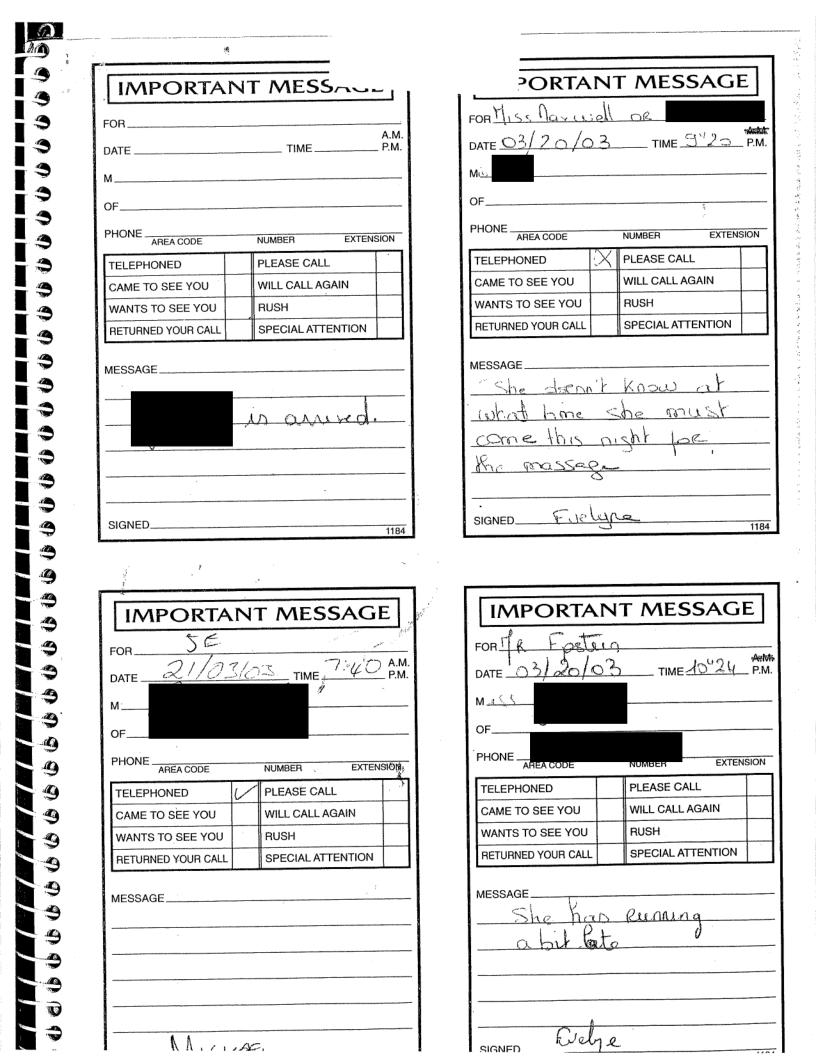 IMPORTANT MESSAGE
FOR
A.M.
DATE TIME P.M.
M
OF
PHONE
AREA CODE NUMBER EXTENSION
TELEPHONED PLEASE CALL
CAME TO SEE YOU WILL CALL AGAIN
WANTS TO SEE YOU RUSH
RETURNED YOUR CALL SPECIAL ATTENTION
MESSAGE
is arrived.
SIGNED
1184
PORTANT MESSAGE
FOR Miss Maxwell OR
A.M.
DATE 03/20/03 TIME 9"20 P.M.
OF
PHONE
AREA CODE NUMBER EXTENSION
TELEPHONED X PLEASE CALL
CAME TO SEE YOU WILL CALL AGAIN
WANTS TO SEE YOU RUSH
RETURNED YOUR CALL SPECIAL ATTENTION
MESSAGE
She doesn't know at
what time she must
come this night for
the massage
SIGNED Evelyne
1184
IMPORTANT MESSAGE
FOR JE
A.M.
DATE 21/03/03 TIME 7:40 P.M.
M
OF
PHONE
AREA CODE NUMBER EXTENSION
TELEPHONED ✓ PLEASE CALL
CAME TO SEE YOU WILL CALL AGAIN
WANTS TO SEE YOU RUSH
RETURNED YOUR CALL SPECIAL ATTENTION
MESSAGE
IMPORTANT MESSAGE
FOR MR Epstein
A.M.
DATE 03/20/03 TIME 10"24 P.M.
Miss
OF
PHONE
AREA CODE NUMBER EXTENSION
TELEPHONED PLEASE CALL
CAME TO SEE YOU WILL CALL AGAIN
WANTS TO SEE YOU RUSH
RETURNED YOUR CALL SPECIAL ATTENTION
MESSAGE
She has running
a bit late
SIGNED